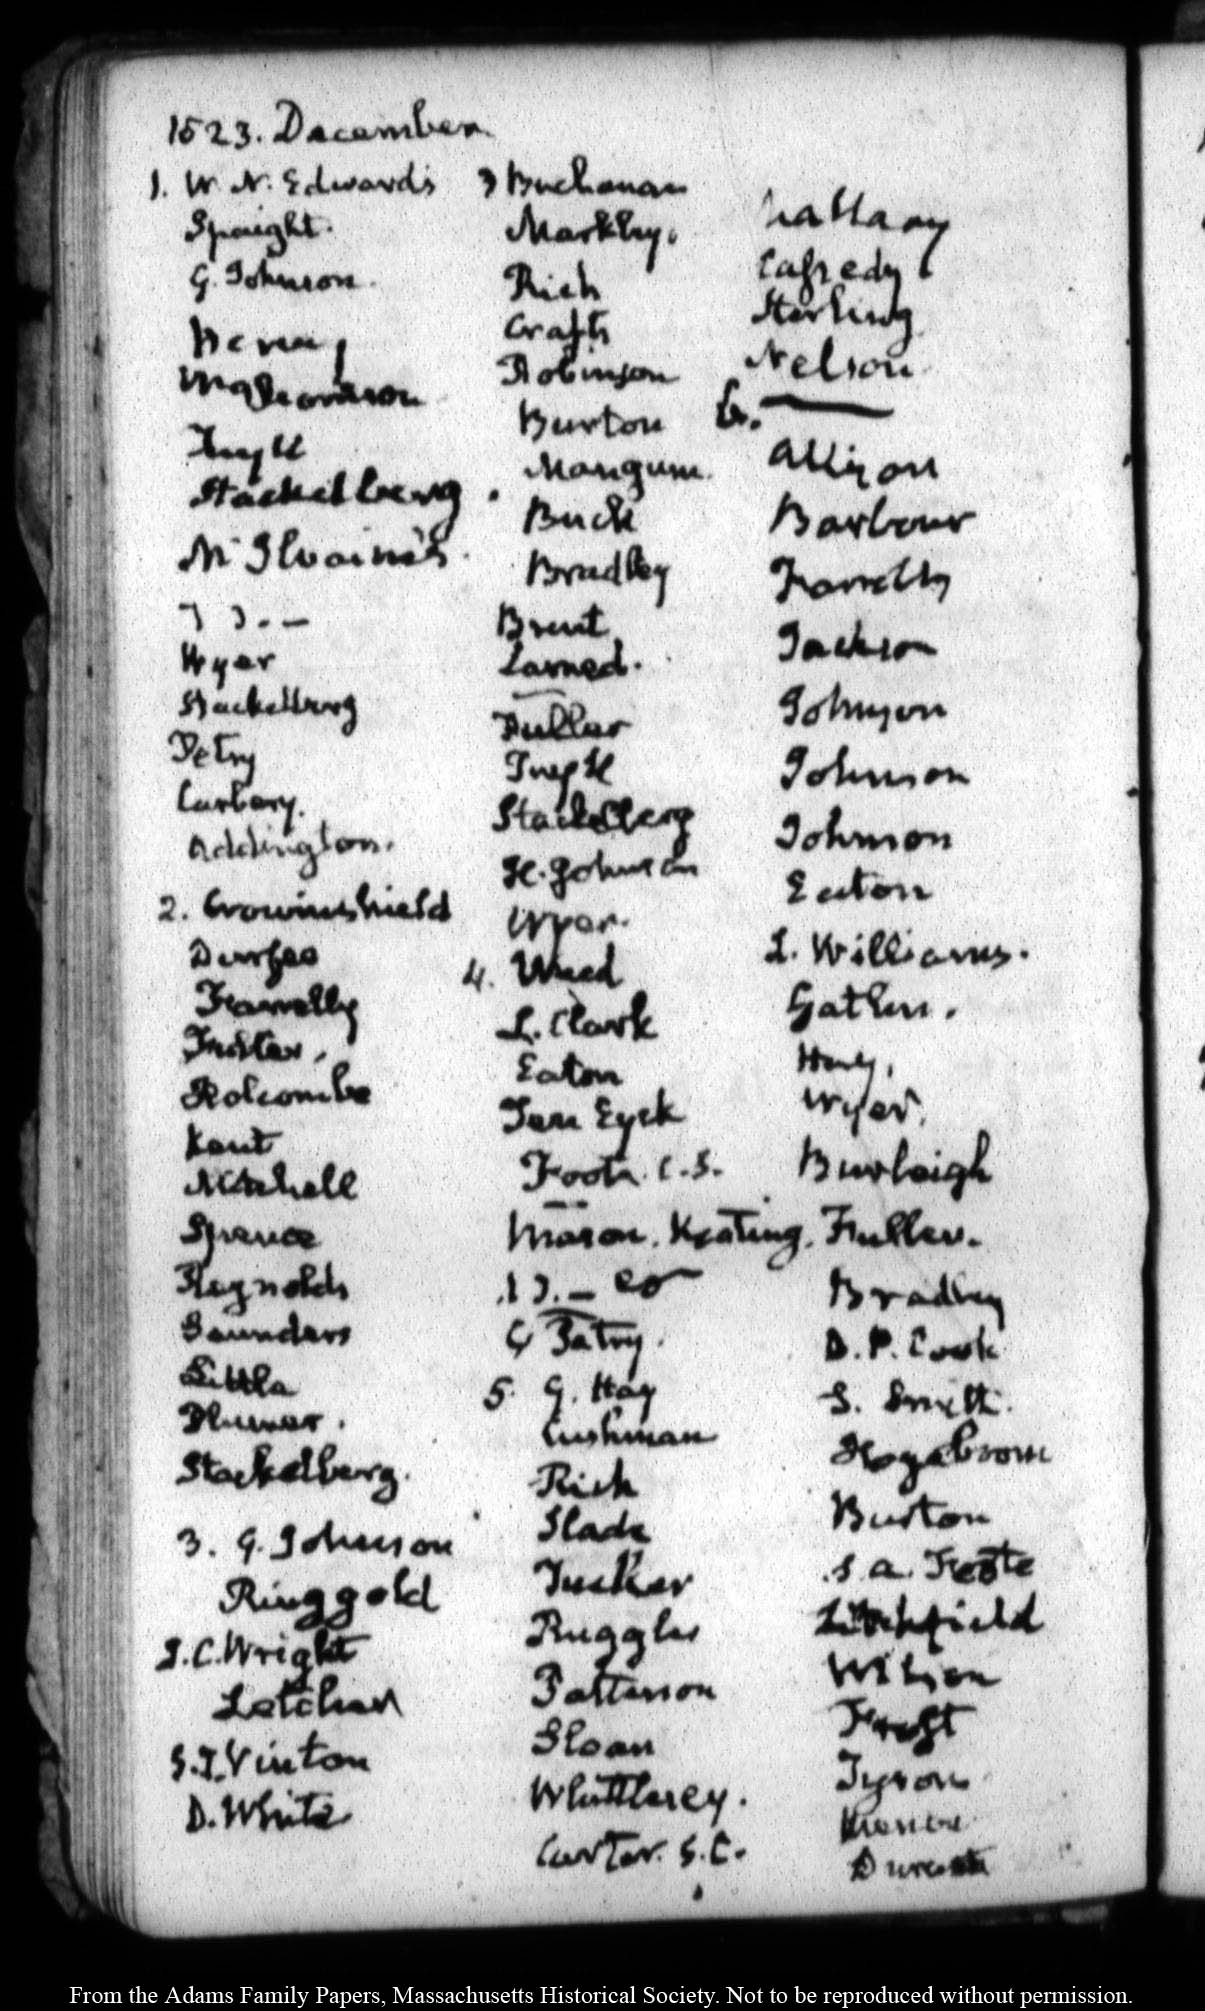 1823. December
1. W. N. Edwards
Spaight.
G. Johnson.
Tuyll
Stackelberg.
McIlvaine's.
Wyer
Stackelberg
Petry
Carbery.
Addington.
2. Crowninshield
Durfee
Farrelly
Holcombe
Kent
Mitchell
Spence
Reynolds
Saunders
Little
Plumer.
Stackelberg.
3. G. Johnson
Ringgold
J. C. Wright
Letcher
S. F. Vinton
D. White
3 Buchanan
Markley.
Rich
Crafts
Robinson
Burton
Mangum.
Buck
Bradley
Brent
Larned.
Fuller
Tuyll
Stackelberg
H. Johnson
Wyer.
4. Weed
L. Clark
Eaton
Ten Eyck
Foote. C. S.
Mason. Keating. Fuller.
Petry.
5. G. Hay
Cushman
Rich
Slade
Tucker
Ruggles
Patterson
Sloan
Whittlesey.
Carter. S. C.
Cassedy
Sterling
Nelson
6.
Allison
Barbour
Farrelly
Jackson
Johnson
Johnson
Johnson
Eaton
L. Williams.
Gatlin.
Hay.
Wyer.
Burleigh
Bradley
D. P. Cook
S. Smith.
Hogeboom
Burton
S. A. Foote
Litchfield
Wilson
Frost
Tyson
From the Adams Family Papers, Massachusetts Historical Society. Not to be reproduced without permission.